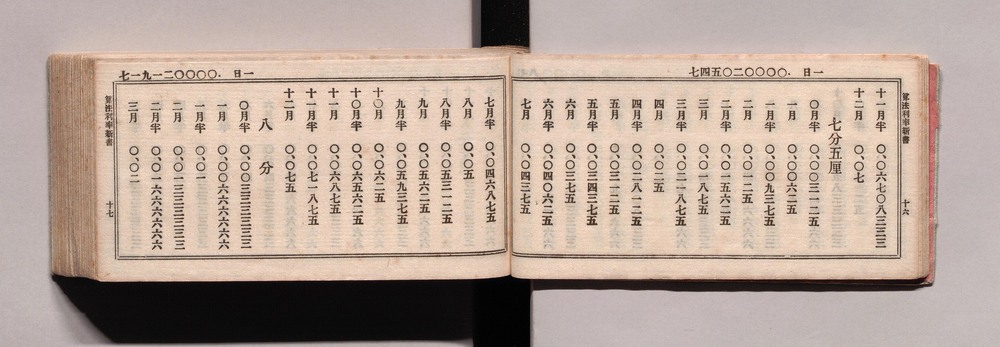 一日．〇〇〇〇二〇五四七
算法利率新書
十六
十一月半 〇、〇六七〇八三三三
十二月 〇、〇七
七分五厘
〇月半 〇、〇〇三一二五
一月 〇、〇〇六二五
一月半 〇、〇〇九三七五
二月 〇、〇一二五
二月半 〇、〇一五六二五
三月 〇、〇一八七五
三月半 〇、〇二一八七五
四月 〇、〇二五
四月半 〇、〇二八一二五
五月 〇、〇三一二五
五月半 〇、〇三四三七五
六月 〇、〇三七五
六月半 〇、〇四〇六二五
七月 〇、〇四三七五
一日．〇〇〇〇二一九一七
七月半 〇、〇四六八七五
八月 〇、〇五
八月半 〇、〇五三一二五
九月 〇、〇五六二五
九月半 〇、〇五九三七五
十〇月 〇、〇六二五
十〇月半 〇、〇六五六二五
十一月 〇、〇六八七五
十一月半 〇、〇七一八七五
十二月 〇、〇七五
八分
〇月半 〇、〇〇三三三三三三
一月 〇、〇〇六六六六六六
一月半 〇、〇一
二月 〇、〇一三三三三三三
二月半 〇、〇一六六六六六六
三月 〇、〇二
算法利率新書
十七